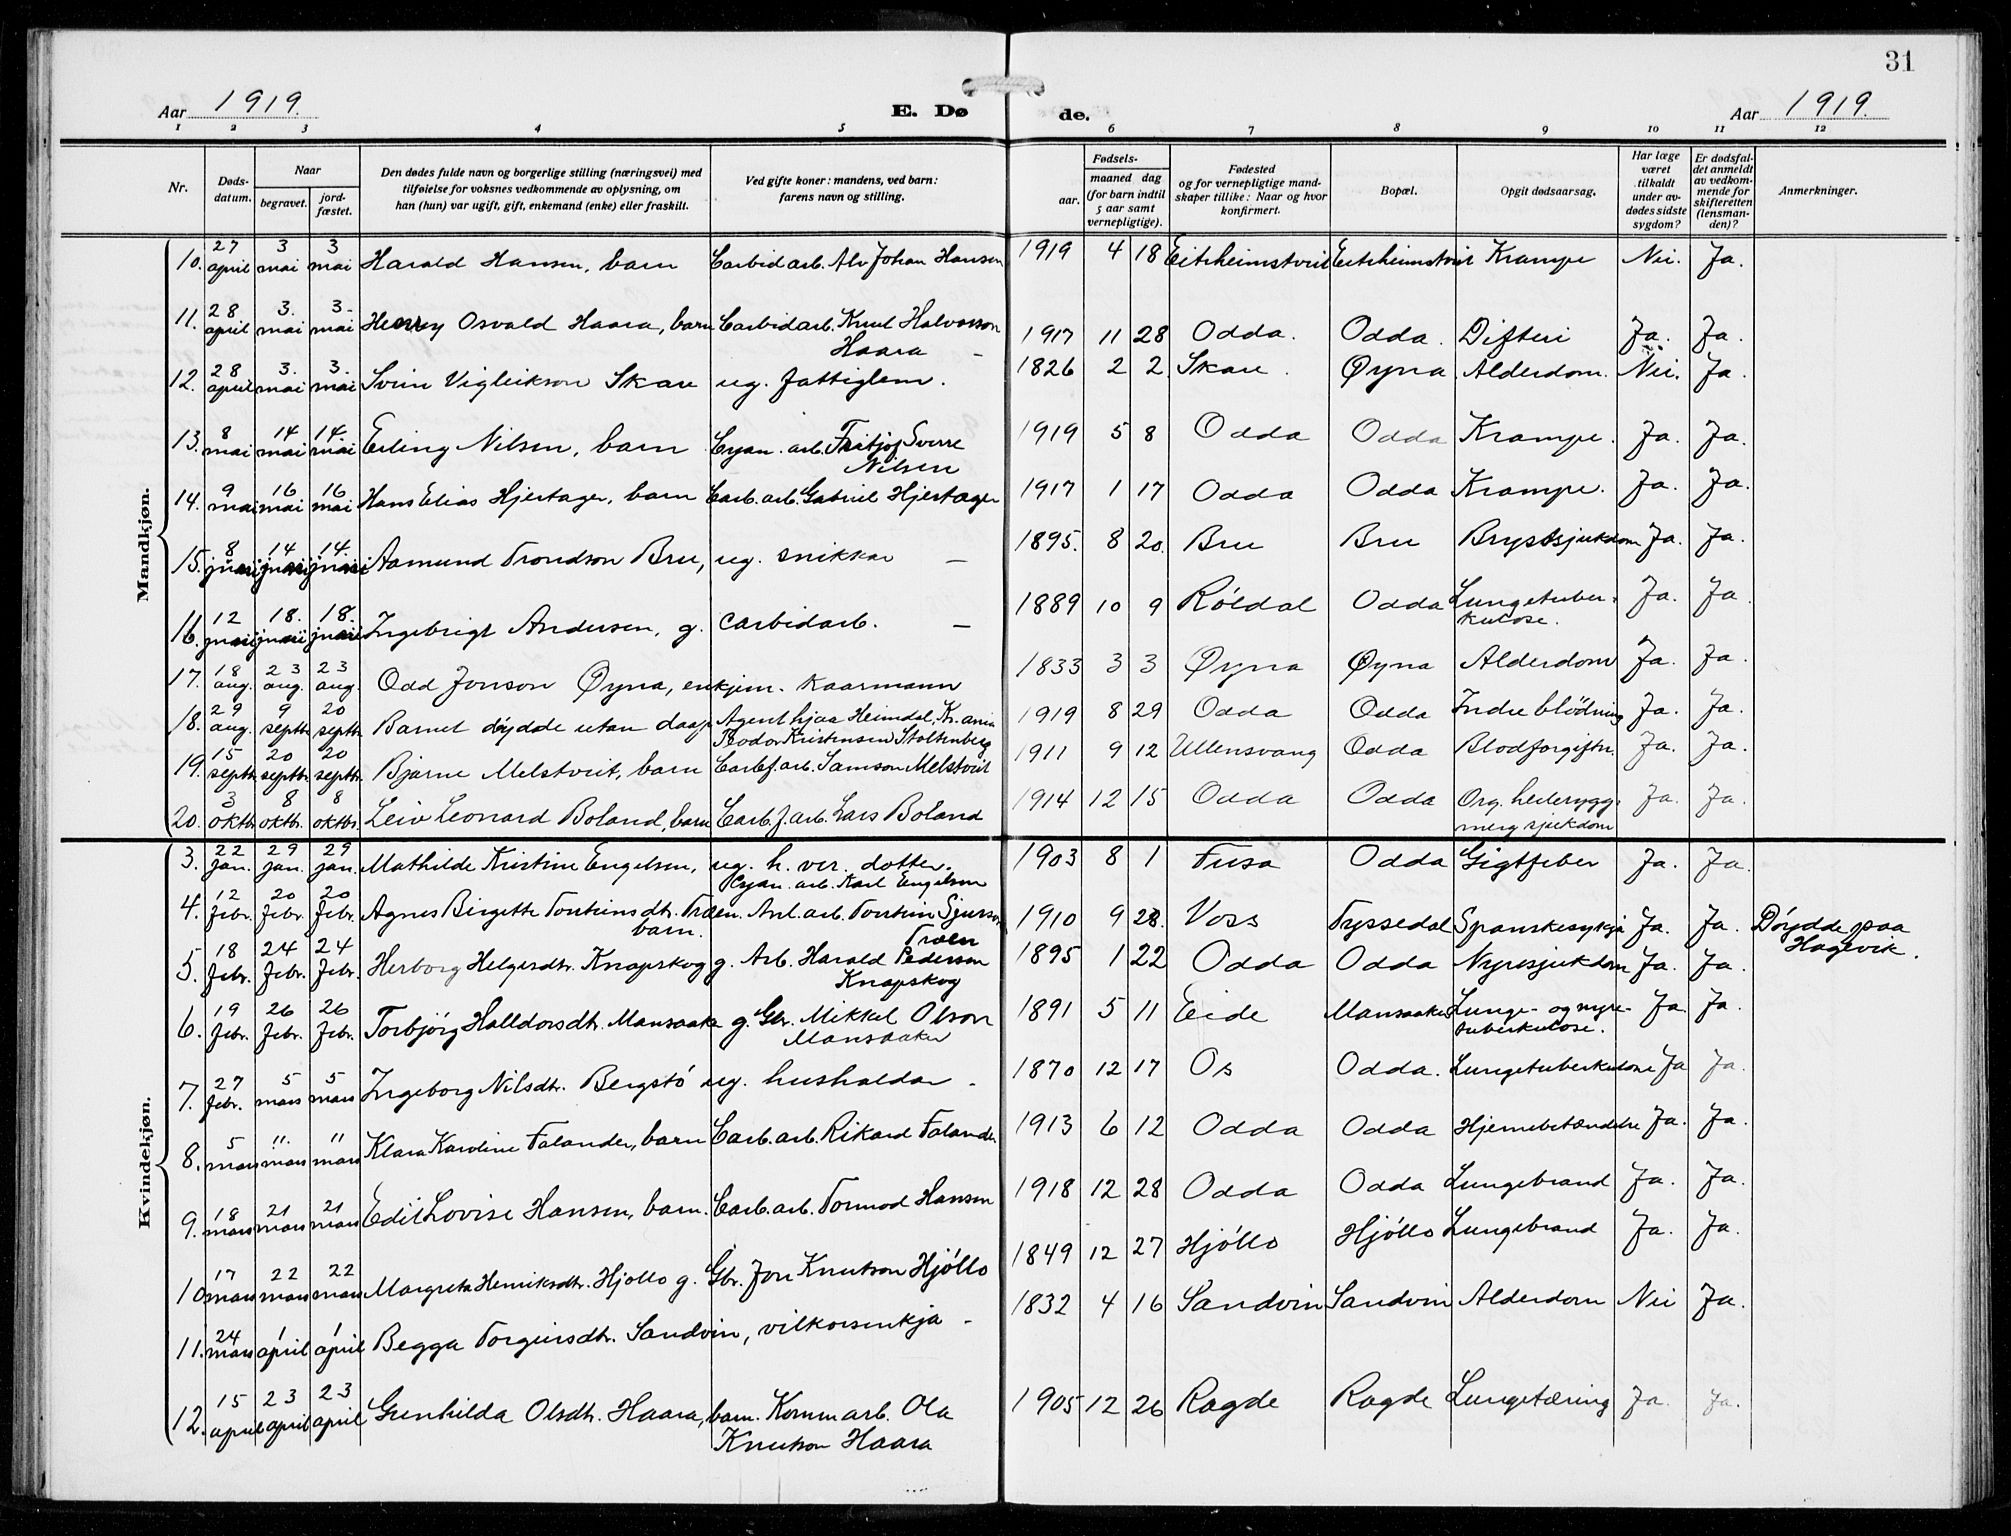 31
Aar 1919.
E. Dø
de.
Aar 1919.
1 2 3 4 5 6 7 8 9 10 11 12
Nr.
Døds-
datum.
Naar
begravet.
jord-
fæstet.
Den dødes fulde navn og borgerlige stilling (næringsvei) med
tilføielse for voksnes vedkommende av oplysning, om
han (hun) var ugift, gift, enkemand (enke) eller fraskilt.
Ved gifte koner: mandens, ved barn:
farens navn og stilling.
Fødsels-
aar.
maaned dag
(for barn indtil
5 aar samt
vernepligtige).
Fødested
og for vernepligtige mand-
skaper tillike: Naar og hvor
konfirmert.
Bopæl.
Opgit dødsaarsag.
Har læge
været
tilkaldt
under av-
dødes sidste
sygdom?
Er dødsfal-
det anmeldt
av vedkom-
mende for
skifteretten
(lensman-
den)?
Anmerkninger.
Mandkjøn.
10. 27 april 3 mai 3 mai Harald Hansen, barn Carbidarb. Alv Johan Hansen 1919 4 18 Eitrheimstveit Eitrheimstveit Krampe Nei. Ja.
11. 28 april 3. mai 3. mai Henry Osvald Haara, barn Carbidarb. Knut Halvorson
Haara – 1917 11 28 Odda. Odda. Difteri Ja. Ja.
12. 28 april 3. mai 3. mai Svein Vigleikson Skare ug. fattiglem. 1826 2 2 Skare. Øyna Alderdom. Nei. Ja.
13. 8 mai 14 mai 14 mai Erling Nilsen, barn Cyan. arb. Fritjof Sverre
Nilsen 1919 5 8 Odda Odda Krampe. Ja. Ja.
14. 9 mai 16 mai 16 mai Hans Elias Hjertager, barn Carb. arb. Gabriel Hjertager 1917 1 17 Odda Odda Krampe. Ja. Ja.
15. 8 juni 14 juni 14. juni Aamund Trondson Bru, ug. snikkar – 1895. 8 20. Bru Bru Brystsjukdom Ja. Ja.
16. 12 juni 18. juni 18. juni Ingebrigt Andersen, g. carbidarb. – 1889 10 9 Röldal Odda Lungetuber-
kulose. Ja. Ja.
17. 18 aug. 23 aug. 23 aug. Odd Jonson Øyna, enkjem. kaarmann 1833 3 3 Øyna Øyna Alderdom Ja. Ja.
18. 29 aug. 9 septb. 20 septb. Barnet döydde utan daap Agent hjaa Heimdal, Kr.ania
Teodor Kristensen Stoltenberg 1919 8 29 Odda Odda Indre blödning Ja. Ja.
19. 15 septb. 20 septb. 20 septb. Bjarne Melstveit, barn Carbf. arb. Samson Melstveit 1911 9 12 Ullensvang Odda Blodforgiftn. Ja. Ja.
20. 3 oktbr. 8 oktbr. 8 oktbr. Leiv Leonard Boland, barn Carb.f. arb. Lars Boland 1914 12 15 Odda Odda Org. hederygg-
merg sjukdom Ja. Ja.
Kvindekjøn.
3. 22 jan. 29 jan. 29 jan. Mathilde Kristine Engelsen, ug. h. ver. dotter.
Cyan. arb. Karl Engelsen 1903 8 1 Fusa Odda Gigtfeber Ja. Ja.
4. 12 febr. 20 febr. 20 febr. Agnes Birgette Torteinsdtr. Træen.
barn. Anl. arb. Tortein Sjurson
Træen 1910 9 28. Voss Tyssedal Spanskesykja Ja. Ja. Döydde paa
Hagevik.
5. 18 febr. 24 febr. 24 febr. Herborg Helgesdtr. Knapskog g. Arb. Harald Pederson
Knapskog 1895 1 22 Odda Odda Nyresjukdom Ja. Ja.
6. 19 febr. 26 febr. 26 febr. Torbjörg Halldorsdtr. Mansaaker g. Gbr. Mikkel Olson
Mansaaker 1891 5 11 Eide Mansaaker Lunge- og nyre-
tuberkulose. Ja. Ja.
7. 27 febr. 5 mars 5 mars Ingeborg Nilsdtr. Bergstö ug. hushaldar – 1870 12 17 Os Odda. Lungetuberkulose Ja Ja.
8. 5 mars 11. mars 11 mars Klara Karoline Falander, barn Carb. arb. Rikard Falander 1913 6 12 Odda Odda Hjernebetændelse Ja. Ja.
9. 18 mars 21 mars 21 mars Edit Lovise Hansen, barn. Carb. arb. Tormod Hansen 1918 12 28 Odda Odda Lungebrand Ja. Ja.
10 17 mars 22 mars 22 mars Margreta Henriksdtr. Hjøllo g. Gbr. Jon Knutson Hjöllo 1849 12 27 Hjöllo Hjöllo Lungebrand Ja. Ja.
11. 24 mars 1 april 1 april Begga Torgeirsdtr. Sandvin, vilkorsenkja – 1832 4 16 Sandvin Sandvin Alderdom Nei Ja.
12. 15 april 23 april 23 april Gunhilda Olsdtr. Haara, barn. Komm arb. Ola
Knutson Haara 1905 12 26 Ragde Ragde Lungetæring Ja. Ja.